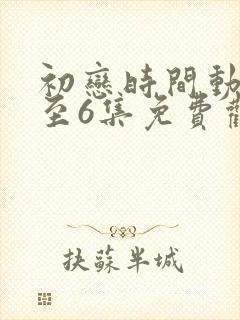 初戀時間動
至6集免費觀
抉蘇半城